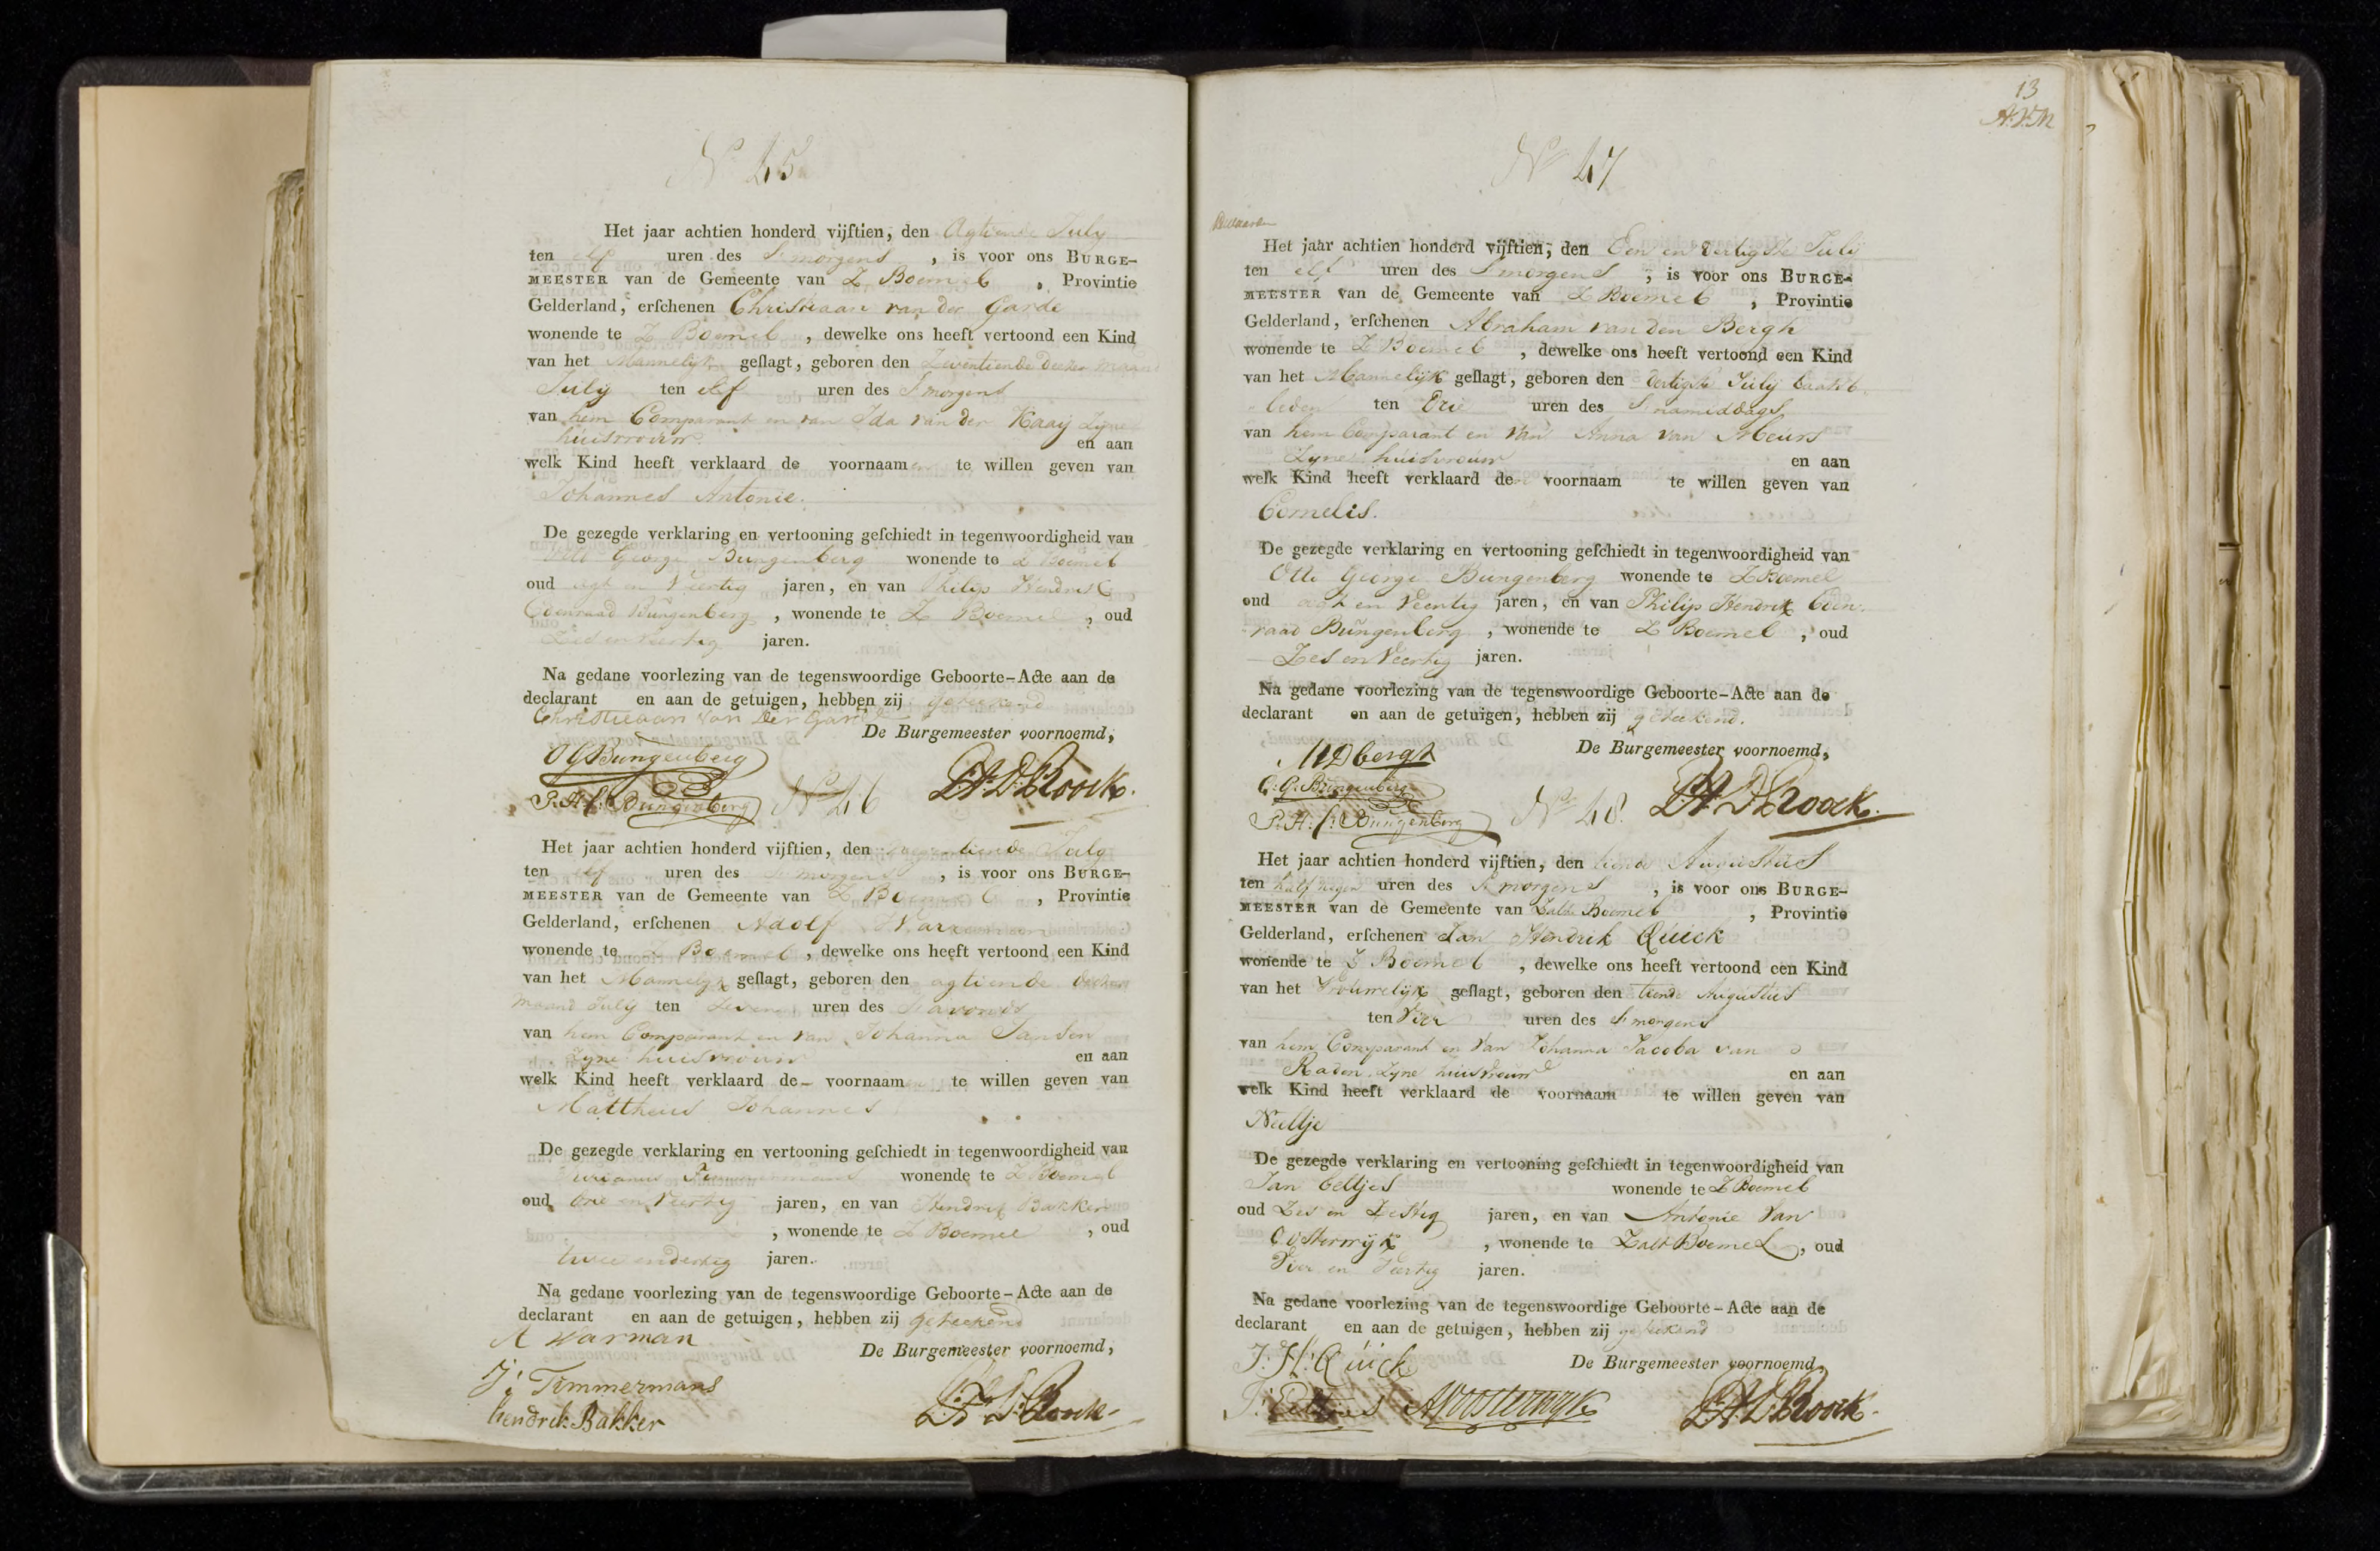 No 45
Het jaar achtien honderd vijftien, den Agtiende July
ten elf uren des S morgens , is voor ons BURGE-
MEESTER van de Gemeente van Z Boemel , Provintie
Gelderland, erschenen Christiaan van der Garde
wonende te Z Boemel , dewelke ons heeft vertoond een Kind
van het Mannelijk geslagt, geboren den Zeventiende dezer maand
July ten elf uren des S morgens
van hem Comparant en van Ida van der Kaaij Zyne
huisvrouw en aan
welk Kind heeft verklaard de voornaamen te willen geven van
Johannes Antonie.
De gezegde verklaring en vertooning geschiedt in tegenwoordigheid van
Otto George Bungenberg wonende te Z Boemel
oud agt en Veertig jaren, en van Philip Hendrik
Coenraad Bungenberg , wonende te Z Boemel , oud
Zes en Veertig jaren.
Na gedane voorlezing van de tegenswoordige Geboorte-Acte aan de
declarant en aan de getuigen, hebben zij geteekend
Christiaan van der Garde
De Burgemeester voornoemd,
O G Bungenberg
P. H. C. Bungenberg
No 46
Het jaar achtien honderd vijftien, den negentiende July
ten elf uren des S morgens , is voor ons BURGE-
MEESTER van de Gemeente van Z Boemel , Provintie
Gelderland, erschenen Adolf Warman
wonende te Z Boemel , dewelke ons heeft vertoond een Kind
van het Mannelyk geslagt, geboren den agtiende dezer
maand July ten zeven uren des S avonds
van hem Comparant en van Johanna Jansen
Zyne huisvrouw en aan
welk Kind heeft verklaard de voornaamen te willen geven van
Mattheus Johannes
De gezegde verklaring en vertooning geschiedt in tegenwoordigheid van
Timmermans wonende te Z Boemel
oud drie en Veertig jaren, en van Hendrik Bakker
, wonende te Z Boemel , oud
twee en dertig jaren.
Na gedane voorlezing van de tegenswoordige Geboorte-Acte aan de
declarant en aan de getuigen, hebben zij geteekend
A Warman
De Burgemeester voornoemd,
J: Timmermans
hendrik Bakker
13
No 47
Het jaar achtien honderd vijftien, den Een en dertigste July
ten elf uren des S morgens , is voor ons BURGE-
MEESTER van de Gemeente van Z Boemel , Provintie
Gelderland, erschenen Abraham van den Bergh
wonende te Z Boemel , dewelke ons heeft vertoond een Kind
van het Mannelijk geslagt, geboren den dertigste July laatst
leden ten drie uren des S namiddags
van hem Comparant en van Anna van Meurs
Zyne huisvrouw en aan
welk Kind heeft verklaard de voornaam te willen geven van
Cornelis.
De gezegde verklaring en vertooning geschiedt in tegenwoordigheid van
Otto George Bungenberg wonende te Z Boemel
oud agt en Veertig jaren, en van Philip Hendrik Coen-
raad Bungenberg , wonende te Z Boemel , oud
Zes en Veertig jaren.
Na gedane voorlezing van de tegenswoordige Geboorte-Acte aan de
declarant en aan de getuigen, hebben zij geteekend.
De Burgemeester voornoemd,
O. G. Bungenberg
P. H. C. Bungenberg
No 48.
Het jaar achtien honderd vijftien, den tiende Augustus
ten half negen uren des S morgens , is voor ons BURGE-
MEESTER van de Gemeente van Zalt Boemel , Provintie
Gelderland, erschenen Jan Hendrik Quick
wonende te Z Boemel , dewelke ons heeft vertoond een Kind
van het Vrouwelijk geslagt, geboren den tiende Augustus
ten Vier uren des S morgens
van hem Comparant en van Johanna Jacoba van
Raden Zyne huisvrouw en aan
welk Kind heeft verklaard de voornaam te willen geven van
Neeltje
De gezegde verklaring en vertooning geschiedt in tegenwoordigheid van
Jan Celtjes wonende te Z Boemel
oud Zes en Zestig jaren, en van Antonie van
Oosterwijk , wonende te Zalt Boemel , oud
Vier en Veertig jaren.
Na gedane voorlezing van de tegenswoordige Geboorte-Acte aan de
declarant en aan de getuigen, hebben zij geteekend
J. H. Quick
De Burgemeester voornoemd,
A V Oosterwyk